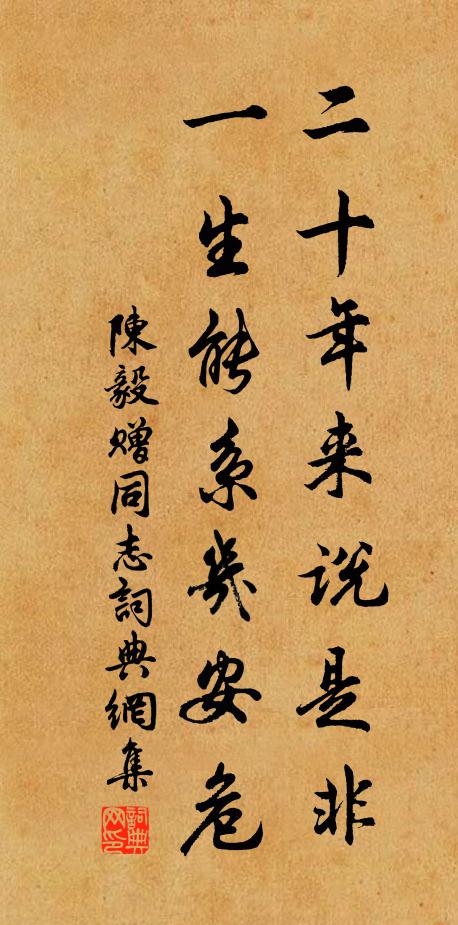 二十年来説是非
一生能系幾安危
陳毅赠同志詞典網集
詞典网印